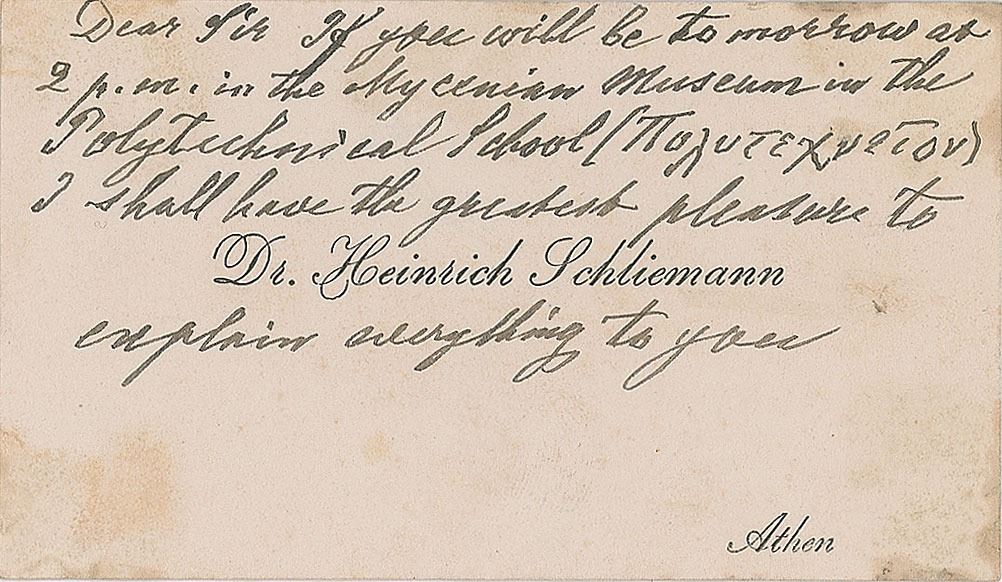 Dear Sir If you will be to morrow at
2 p.m. in the Mycenian Museum in the
Polytechnical School (Πολυτεχνεῖον)
I shall have the greatest pleasure to
Dr. Heinrich Schliemann
explain everything to you
Athen